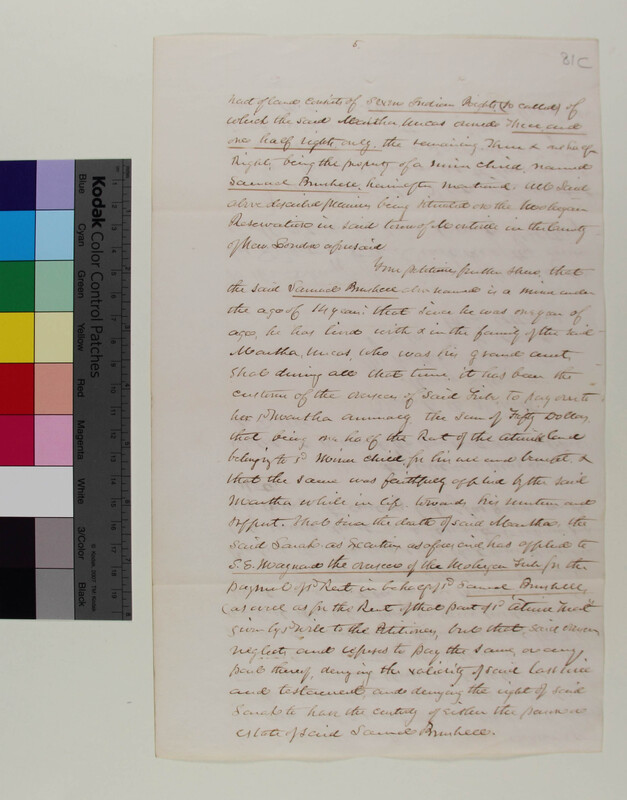 5.
31C
tract of land consists of Seven Indian Rights (so called) of
which the said Martha Uncas owned Three and
one half rights only, the remaining Three & one half
Rights being the property of a minor child, named
Samuel Brushell, hereinafter mentioned. All said
above described premises being situated on the Mohegan
Reservation in said town of Montville in the County
of New London aforesaid
Your petitioner further shows, that
the said Samuel Brushell above named is a minor under
the age of 14 years: that since he was one year of
age, he has lived with & in the family of the said
Martha Uncas, who was his grand aunt,
that during all that time, it has been the
custom of the overseer of said Tribe, to pay over to
her sd Martha annually the sum of Fifty Dollars,
that being one half of the Rent of the land
belonging to sd Minor child, for his use and benefit, &
that the same was faithfully applied by the said
Martha while in life, towards his nurture and
support. That since the death of said Martha, the
said Sarah as Executrix as aforesaid has applied to
S. E. Maynard the overseer of the Mohegan Tribe for the
payment of sd Rent, in behalf of sd Samuel Brushell,
(as well as for the Rent of that part of sd Tract
given by sd Will to the Petitioner, but that said overseer
neglects and refuses to pay the same, or any
part thereof, denying the validity of said last will
and testament, and denying the right of said
Sarah to have the custody of either the person or
estate of said Samuel Brushell.
Kodak Color Control Patches
Blue
Cyan
Green
Yellow
Red
Magenta
White
3/Color
Black